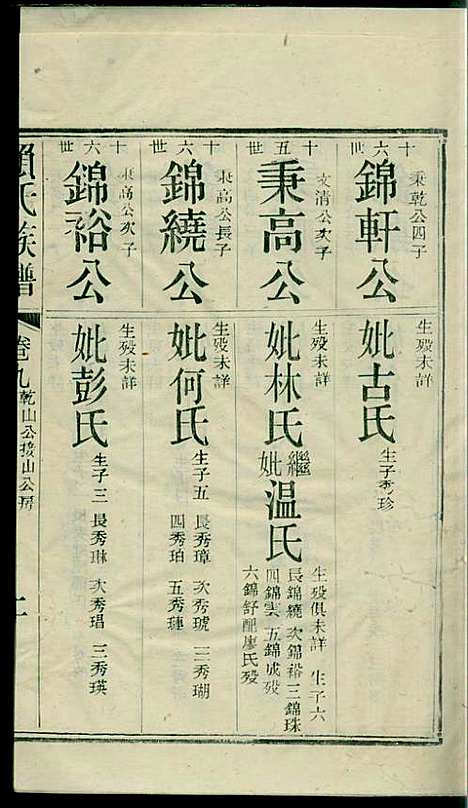 十六世
錦軒公
秉乾公四子
生殁未詳
妣古氏
生子秀珍
十五世
秉高公
文清公次子
生殁未詳
妣林氏
繼妣温氏
生殁俱未詳 生子六
長錦繞 次錦裕 三錦珠
四錦雲 五錦成殁
六錦舒配廖氏殁
十六世
錦繞公
秉高公長子
生殁未詳
妣何氏
生子五 長秀璋 次秀琥 三秀瑚
四秀珀 五秀璉
十六世
錦裕公
秉高公次子
生殁未詳
妣彭氏
生子三 長秀琳 次秀琩 三秀瑛
氏族譜
卷九
乾山公接山公房